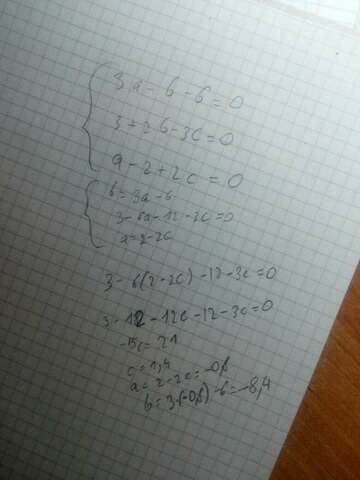 3a - b - 6 = 0
3 + 2b - 3c = 0
a - 2 + 2c = 0
b = 3a - 6
3 - 6a - 12 - 3c = 0
a = 2 - 2c
3 - 6(2 - 2c) - 12 - 3c = 0
3 - 12 - 12c - 12 - 3c = 0
-15c = 21
c = 1,4
a = 2 - 2c = -0,8
b = 3·(-0,8) - 6 = -8,4